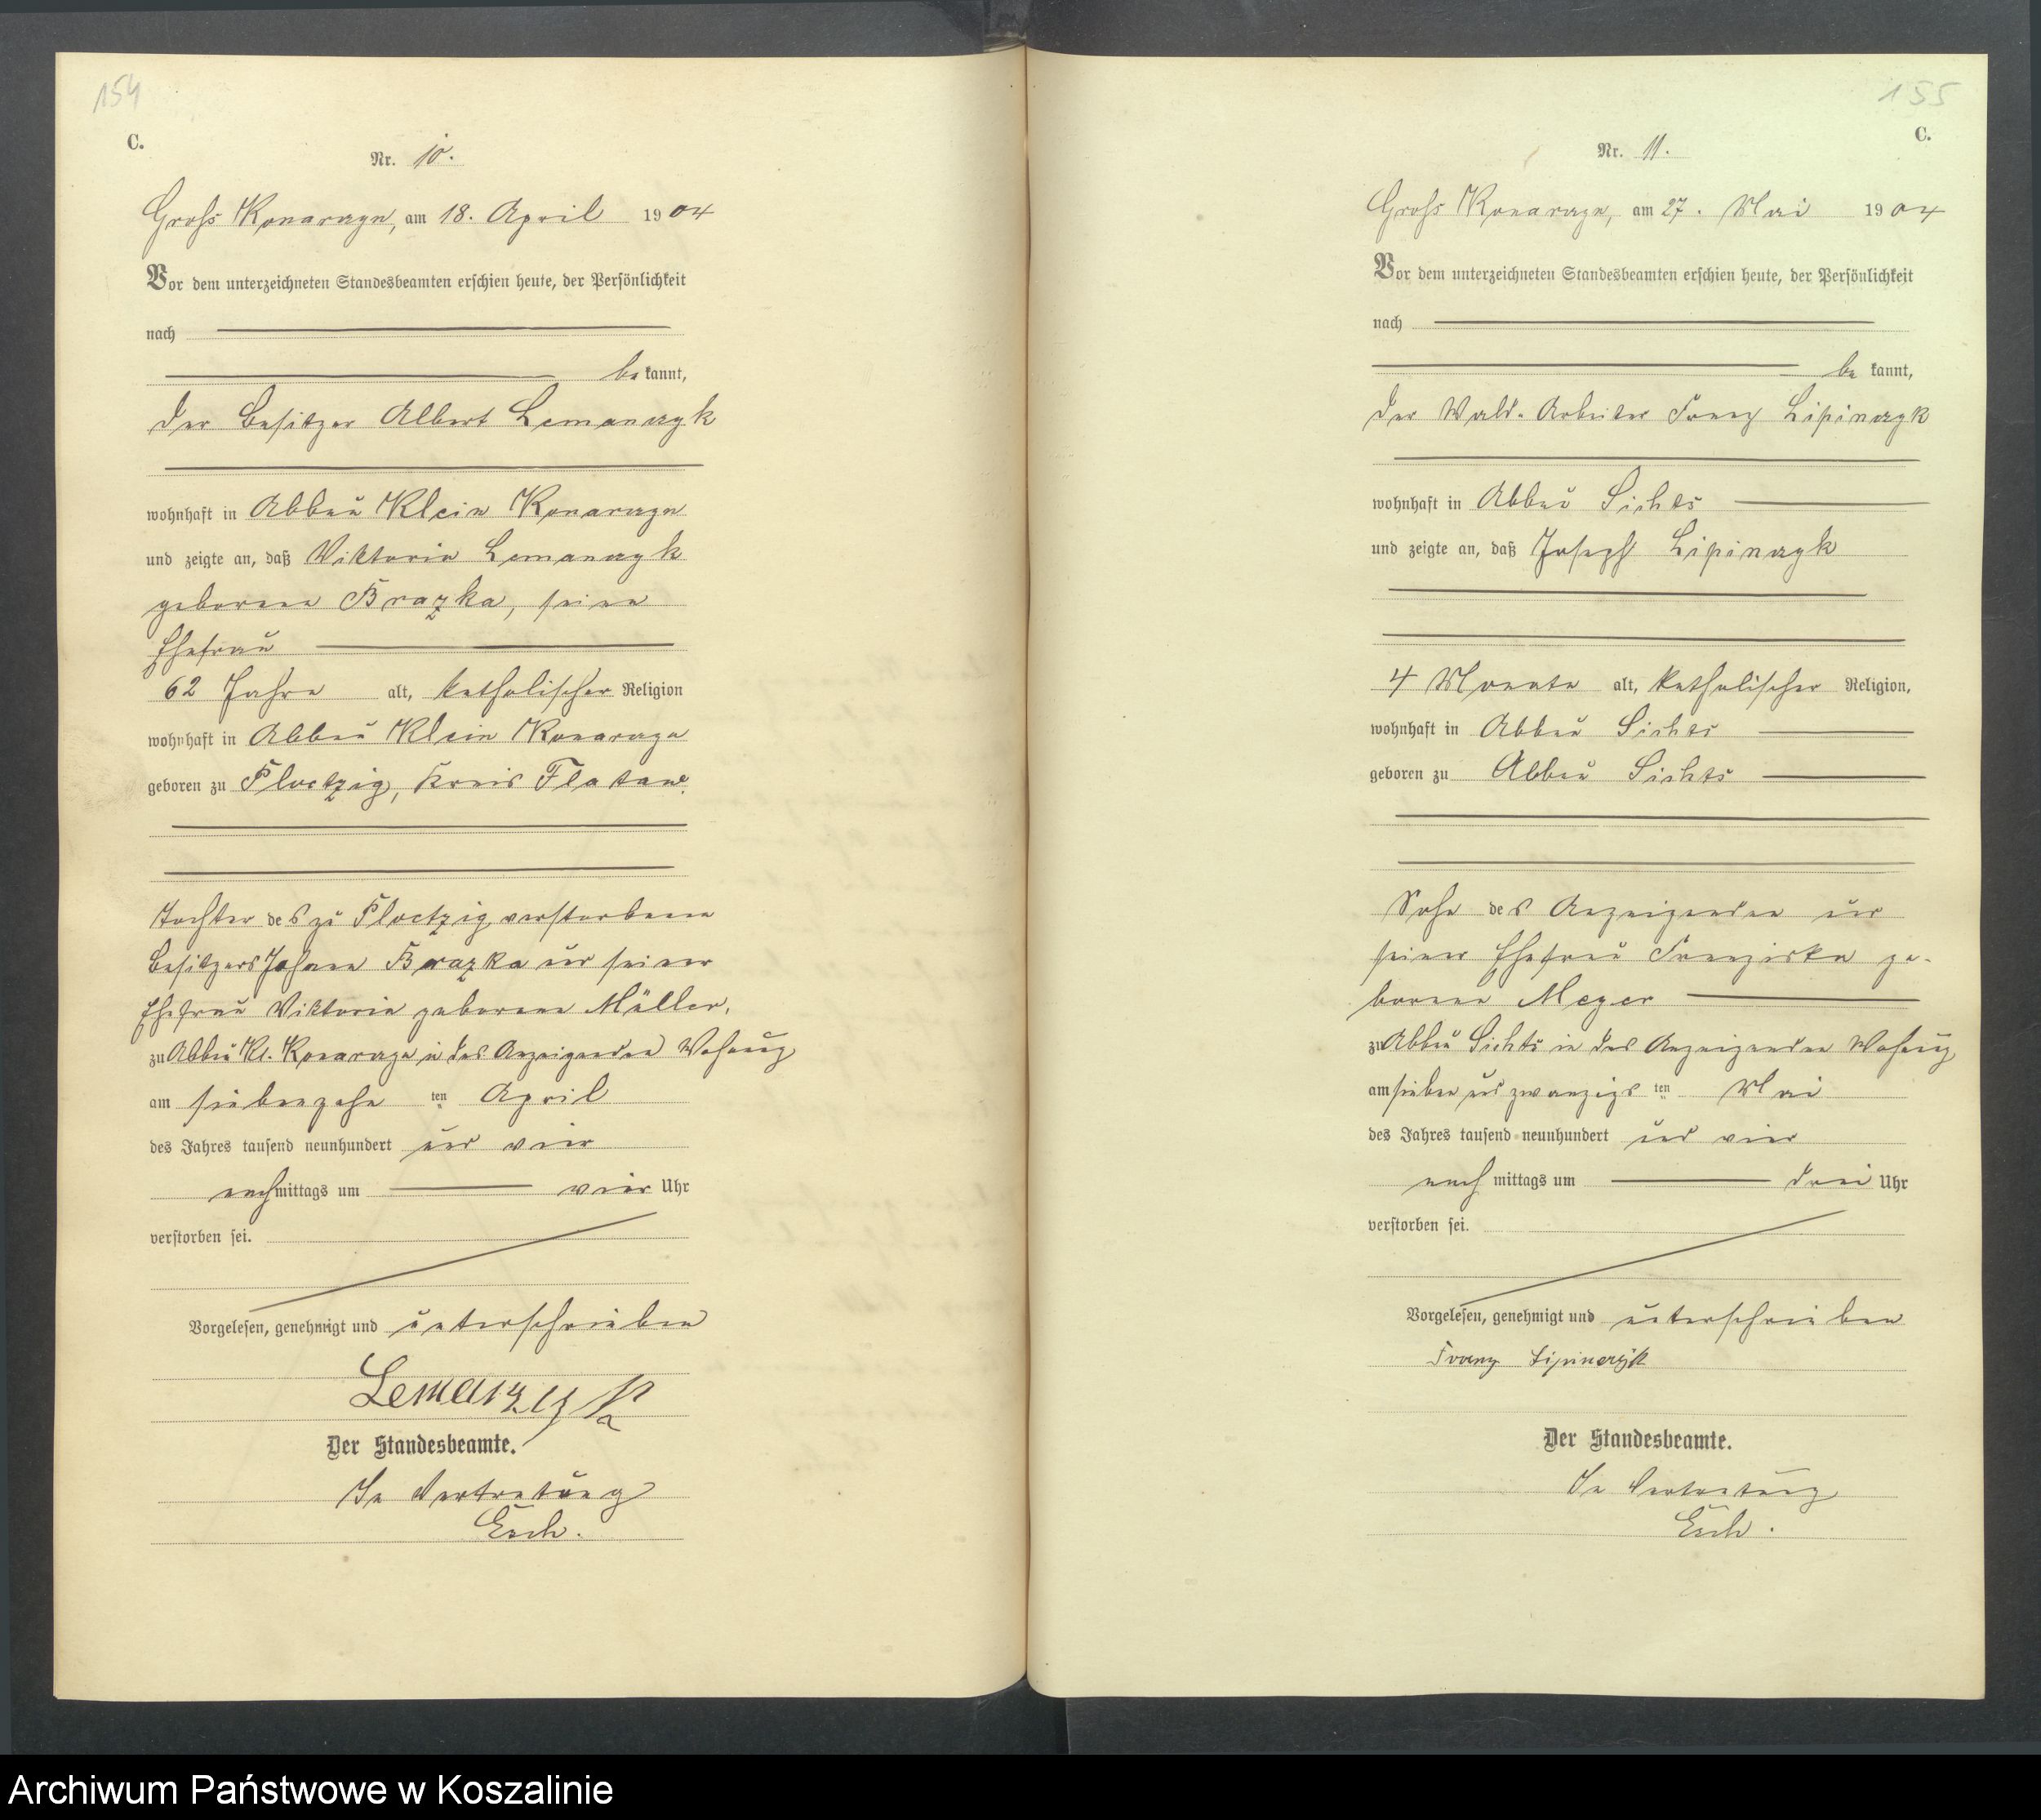 154
C.
Nr. 10.
Gross Konarczyn, am 18. April 1904
Vor dem unterzeichneten Standesbeamten erschien heute, der Persönlichkeit
nach
be kannt,
der Besitzer Albert Lemanczyk
wohnhaft in Abbau Klein Konarczyn
und zeigte an, daß Viktoria Lemanczyk
geborene Brazka, seine
Ehefrau
62 Jahre alt, katholischer Religion
wohnhaft in Abbau Klein Konarczyn
geboren zu Ploetzig, Kreis Flatow.
Tochter des zu Ploetzig verstorbenen
Besitzers Johann Brazka und seiner
Ehefrau Viktoria geborene Müller,
zu Abbau Kl. Konarczyn in des Anzeigenden Wohnung
am siebenzehn ten April
des Jahres tausend neunhundert und vier
nach mittags um vier Uhr
verstorben sei.
Vorgelesen, genehmigt und unterschrieben
Lemanczyk
Der Standesbeamte.
In Vertretung
Esch.
155
C.
Nr. 11.
Gross Konarczyn, am 27. Mai 1904
Vor dem unterzeichneten Standesbeamten erschien heute, der Persönlichkeit
nach
be kannt,
der Wald-Arbeiter Franz Lipinczyk
wohnhaft in Abbau Sichts
und zeigte an, daß Joseph Lipinczyk
4 Monate alt, katholischer Religion,
wohnhaft in Abbau Sichts
geboren zu Abbau Sichts
Sohn des Anzeigenden und
seiner Ehefrau Franziska ge-
borene Meger
zu Abbau Sichts in des Anzeigenden Wohnung
am sieben und zwanzigs ten Mai
des Jahres tausend neunhundert und vier
nach mittags um drei Uhr
verstorben sei.
Vorgelesen, genehmigt und unterschrieben
Franz Lipinczyk
Der Standesbeamte.
In Vertretung
Esch.
Archiwum Państwowe w Koszalinie